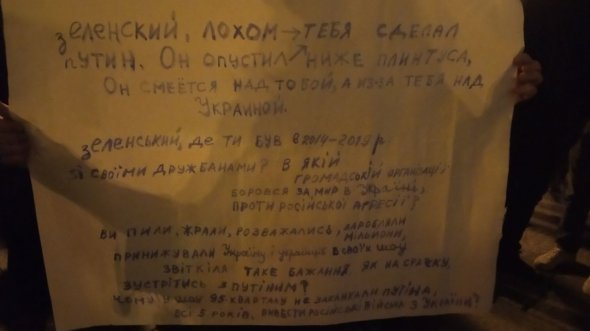 ЗЕЛЕНСКИЙ, ЛОХОМ → ТЕБЯ СДЕЛАЛ
ПУТИН. ОН ОПУСТИЛ ↗ НИЖЕ ПЛИНТУСА,
ОН СМЕЁТСЯ НАД ТОБОЙ, А ИЗ-ЗА ТЕБЯ НАД
УКРАИНОЙ.
ЗЕЛЕНСЬКИЙ, ДЕ ТИ БУВ В 2014-2019 р.
ЗІ СВОЇМИ ДРУЖБАНАМИ? В ЯКІЙ
ГРОМАДСЬКІЙ ОРГАНІЗАЦІЇ
БОРОВСЯ ЗА МИР В УКРАЇНІ,
ПРОТИ РОСІЙСЬКОЇ АГРЕСІЇ?
ВИ ПИЛИ, ЖРАЛИ, РОЗВАЖАЛИСЬ, ЗАРОБЛЯЛИ
МІЛЬЙОНИ,
ПРИНИЖУВАЛИ УКРАЇНУ І УКРАЇНЦІВ В СВОЇХ ШОУ
ЗВІТКІЛА ТАКЕ БАЖАННЯ, ЯК НА СРАЧКУ,
ЗУСТРІТИСЬ З ПУТІНИМ?
ЧОМУ ШОУ 95 КВАРТАЛУ НЕ ЗАКАНТАЛИ ПУТІНА,
ВСІ 5 РОКІВ, ВИВЕСТИ РОСІЙСЬКІ ВІЙСЬКА З УКРАЇНИ?